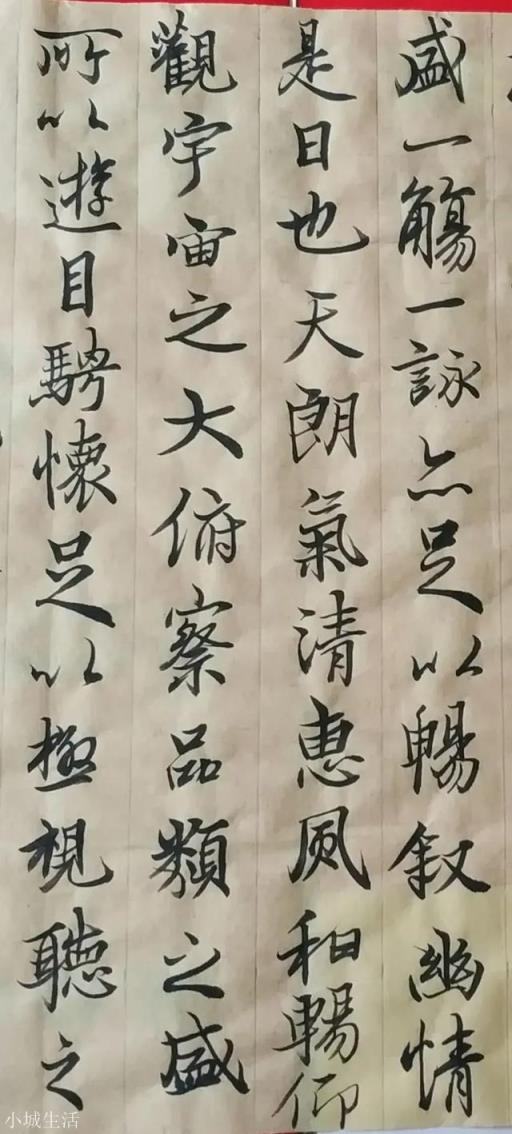 盛一觴一詠亦足以暢叙幽情
是日也天朗氣清惠風和暢仰
觀宇宙之大俯察品類之盛
所以遊目騁懷足以極視聽之
小城生活